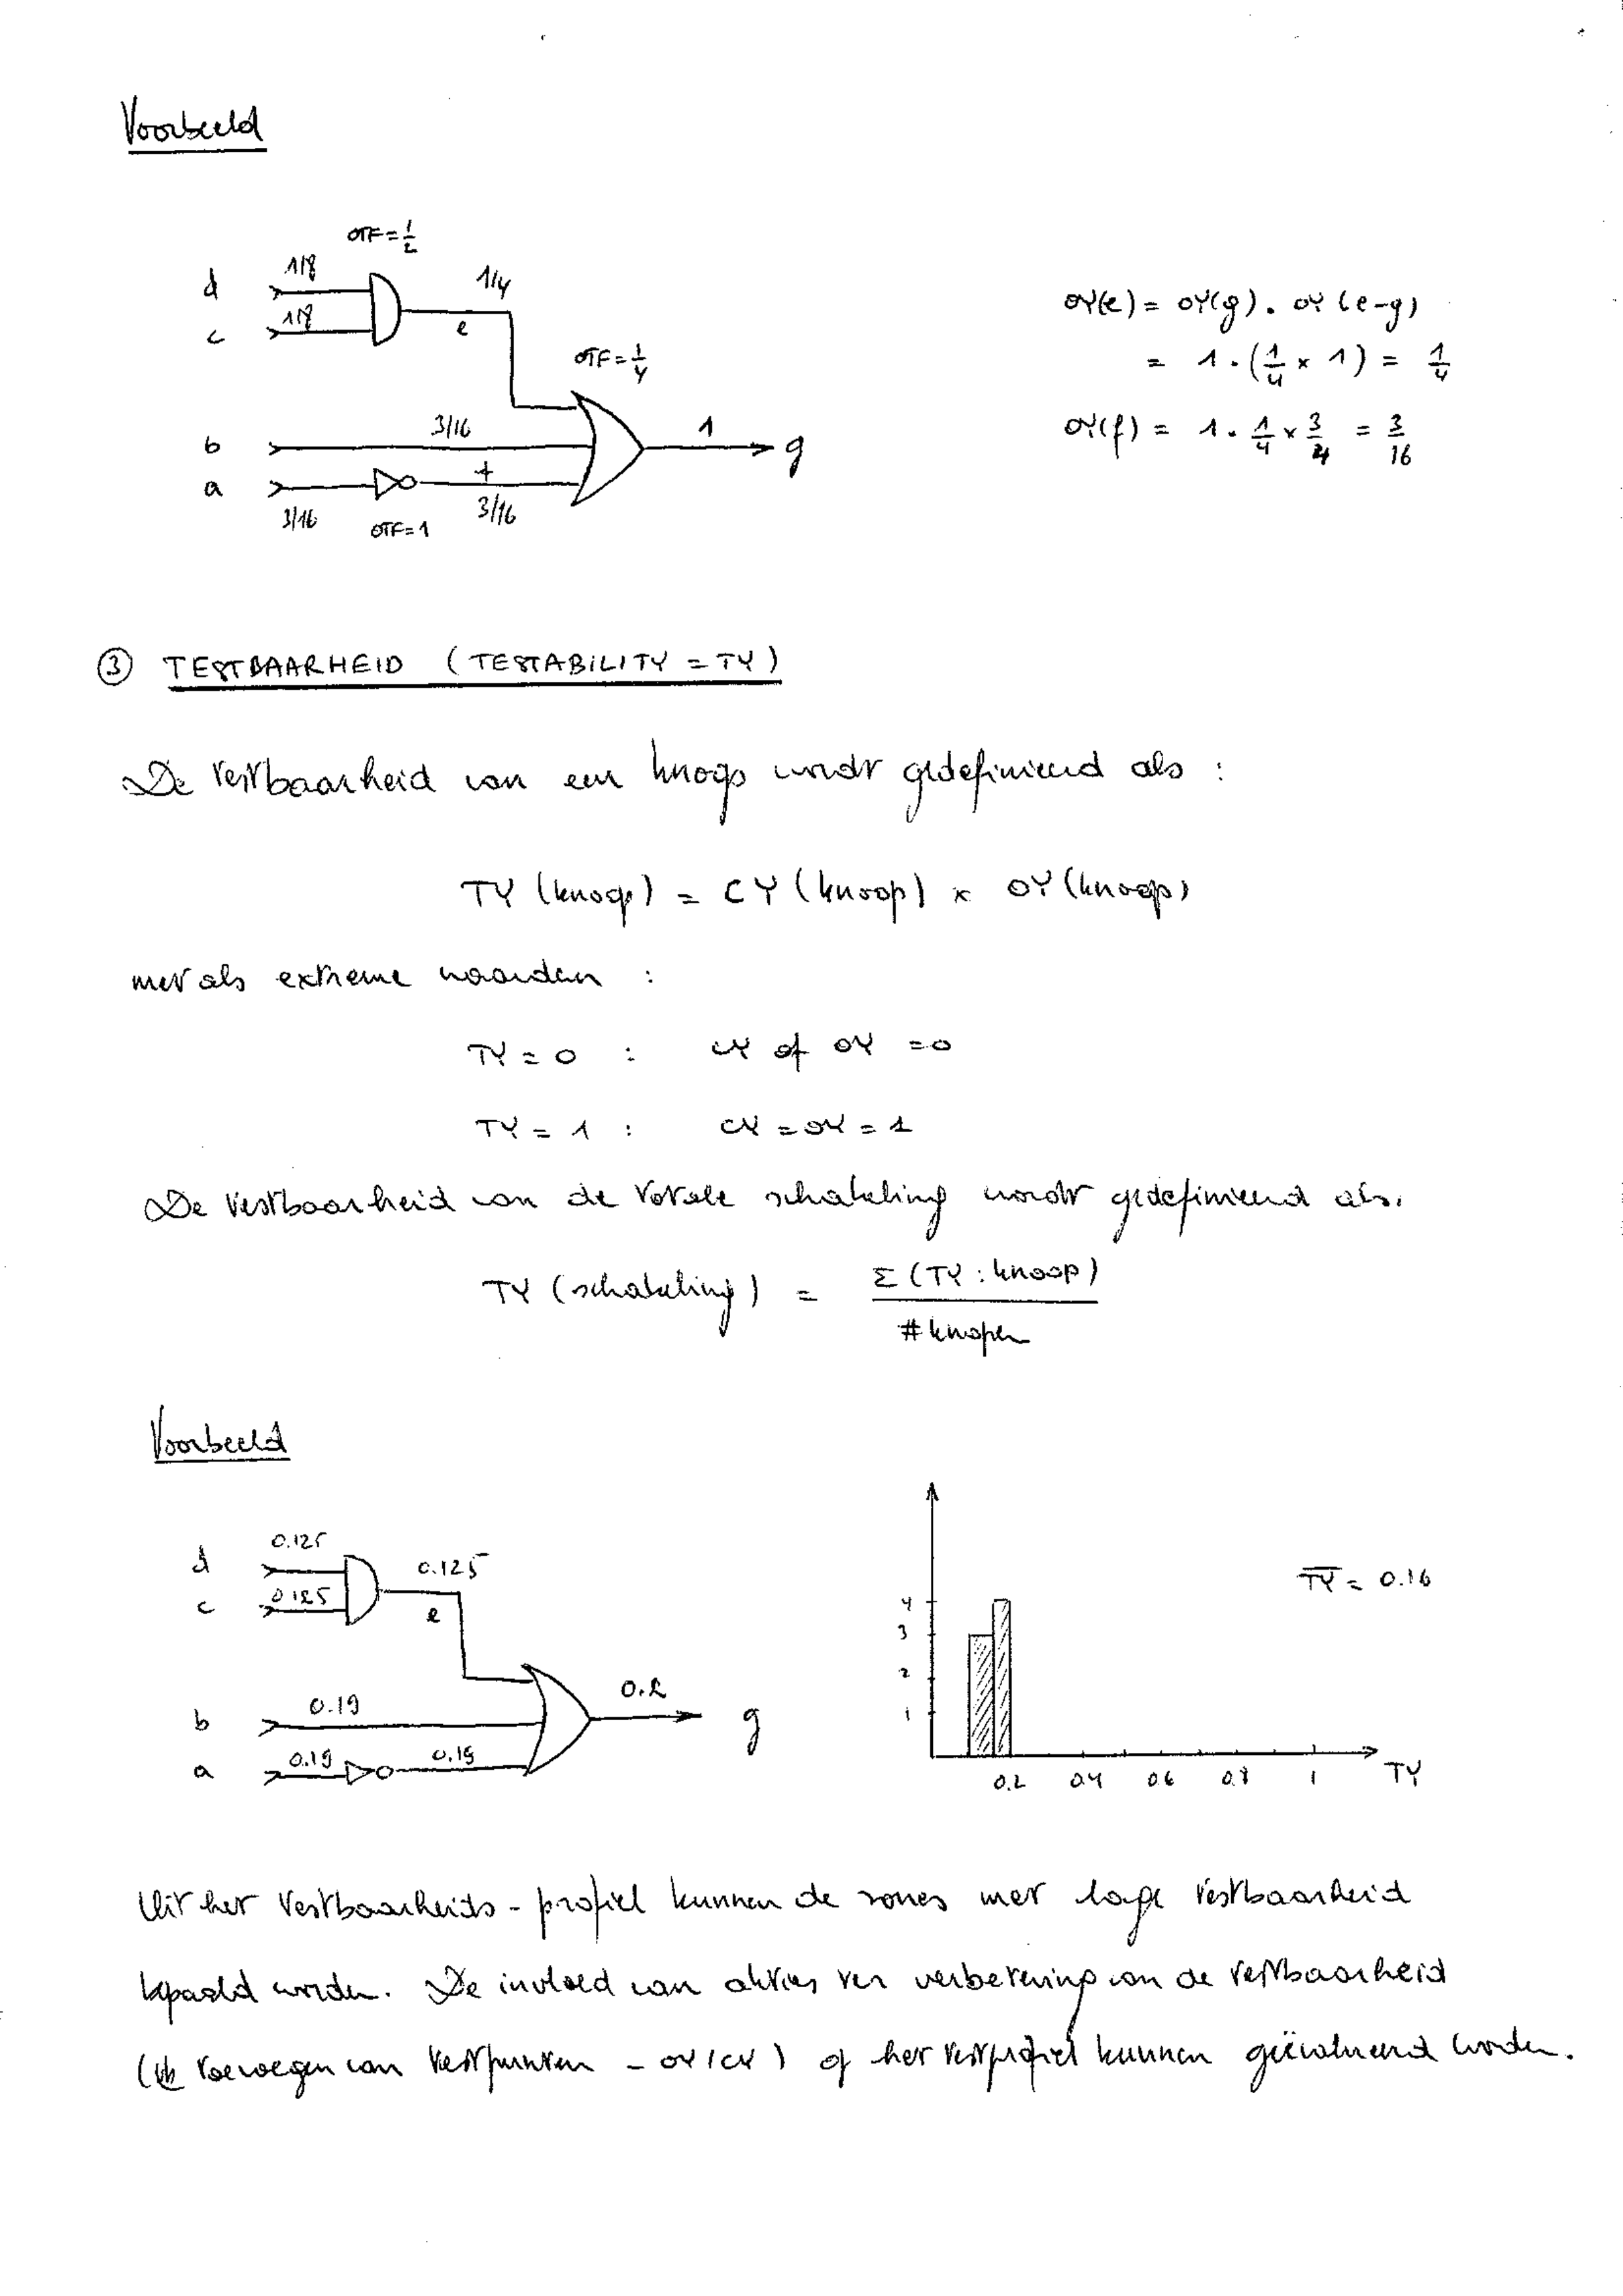 Voorbeeld
OTF=1/2
d 1/8 1/4
c 1/8 e
OTF=1/4
b 3/16 1 g
a f
3/16 OTF=1 3/16
OY(e) = OY(g) . OY(e-g)
= 1 . (1/4 x 1) = 1/4
OY(f) = 1 . 1/4 x 3/4 = 3/16
③ TESTBAARHEID (TESTABILITY = TY)
De testbaarheid van een knoop wordt gedefinieerd als :
TY (knoop) = CY (knoop) x OY (knoop)
met als extreme waarden :
TY = 0 : CY of OY = 0
TY = 1 : CY = OY = 1
De testbaarheid van de totale schakeling wordt gedefinieerd als.
TY (schakeling) = Σ (TY : knoop) / # knopen
Voorbeeld
d 0.125 0.125
c 0.125 e
b 0.19 0.2 g
a 0.19 0.19
TY = 0.16
4
3
2
1
0.2 0.4 0.6 0.8 1 TY
Uit het testbaarheids - profiel kunnen de zones met lage testbaarheid
bepaald worden. De invloed van akties ter verbetering van de testbaarheid
toevoegen van testpunten - OY/CY ) op het testprofiel kunnen geëvalueerd worden.